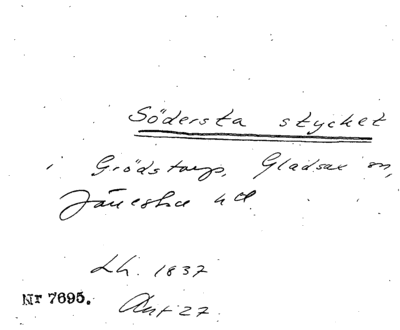 Södersta stycket
i Grödstorp, Gladsax sn,
Järrestad hd.
Lh. 1837
Nr 7695. Akt 27.